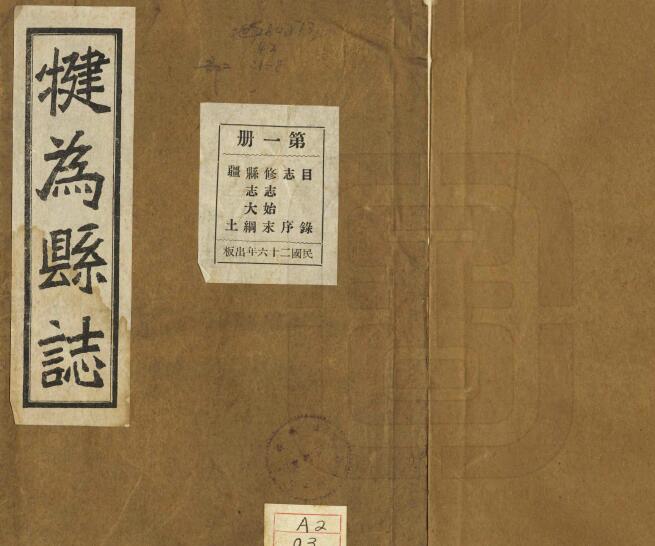 犍為縣誌
第一册
目錄
志序
修志始末
縣志大綱
疆土
民國二十六年出板
A2